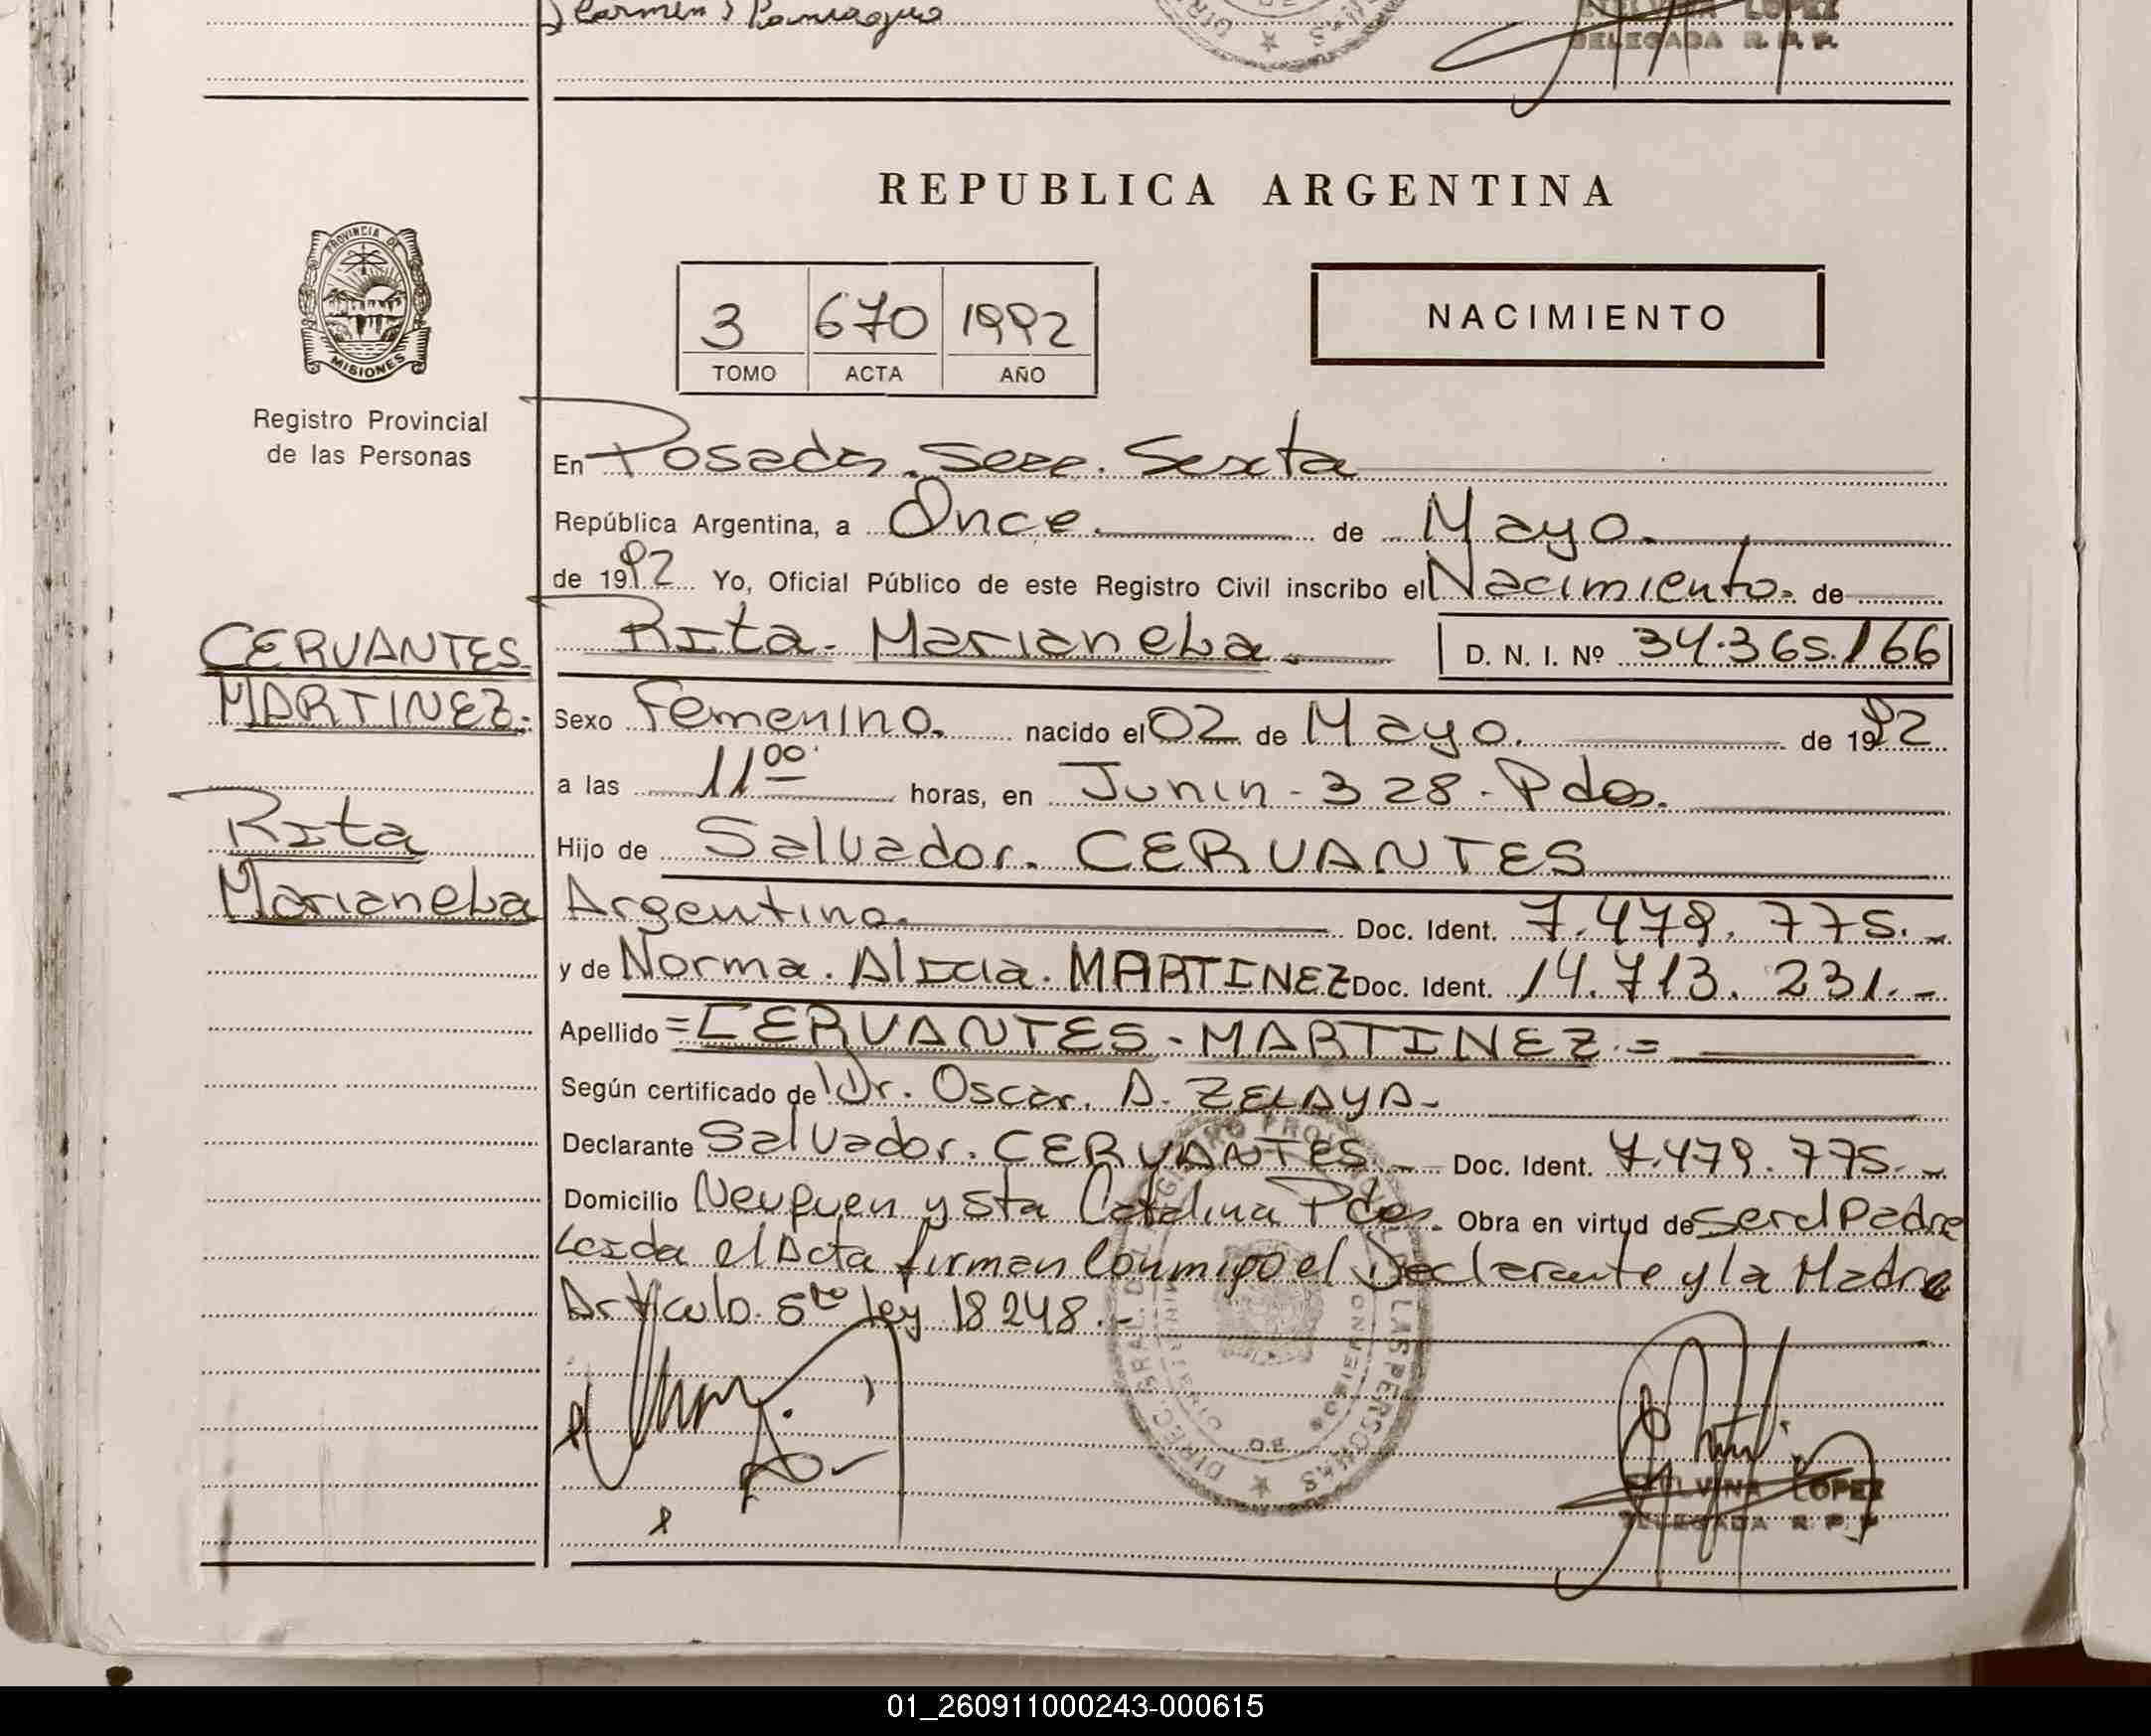 Carmen S Paniagua
LOPEZ
DELEGADA R. P. P.
REPUBLICA ARGENTINA
PROVINCIA DE
MISIONES
Registro Provincial
de las Personas
3 670 1992
TOMO ACTA AÑO
NACIMIENTO
En Posadas. Secc. Sexta
República Argentina, a Once. de Mayo.
de 1992 Yo, Oficial Público de este Registro Civil inscribo el Nacimiento. de
CERVANTES
MARTINEZ.
Rita
Marianeba
Rita. Marianeba. D. N. I. Nº 34.365.166
Sexo Femenino. nacido el 02 de Mayo. de 1992
a las 11 00 horas, en Junin - 328 - Pdas.
Hijo de Salvador. CERVANTES
Argentino. Doc. Ident. 7.479.775.-
y de Norma. Alicia. MARTINEZ Doc. Ident. 14.713.231.-
Apellido =CERVANTES-MARTINEZ.=
Según certificado de Dr. Oscar. A. ZELAYA-
Declarante Salvador. CERVANTES.- Doc. Ident. 7.479.775.-
Domicilio Neuquen y Sta Catalina Pdas. Obra en virtud de ser el Padre
Leida el Acta firman Conmigo el Declarante y la Madre
Articulo 5to ley 18248.-
LOPEZ
DELEGADA R. P. P.
01_260911000243-000615